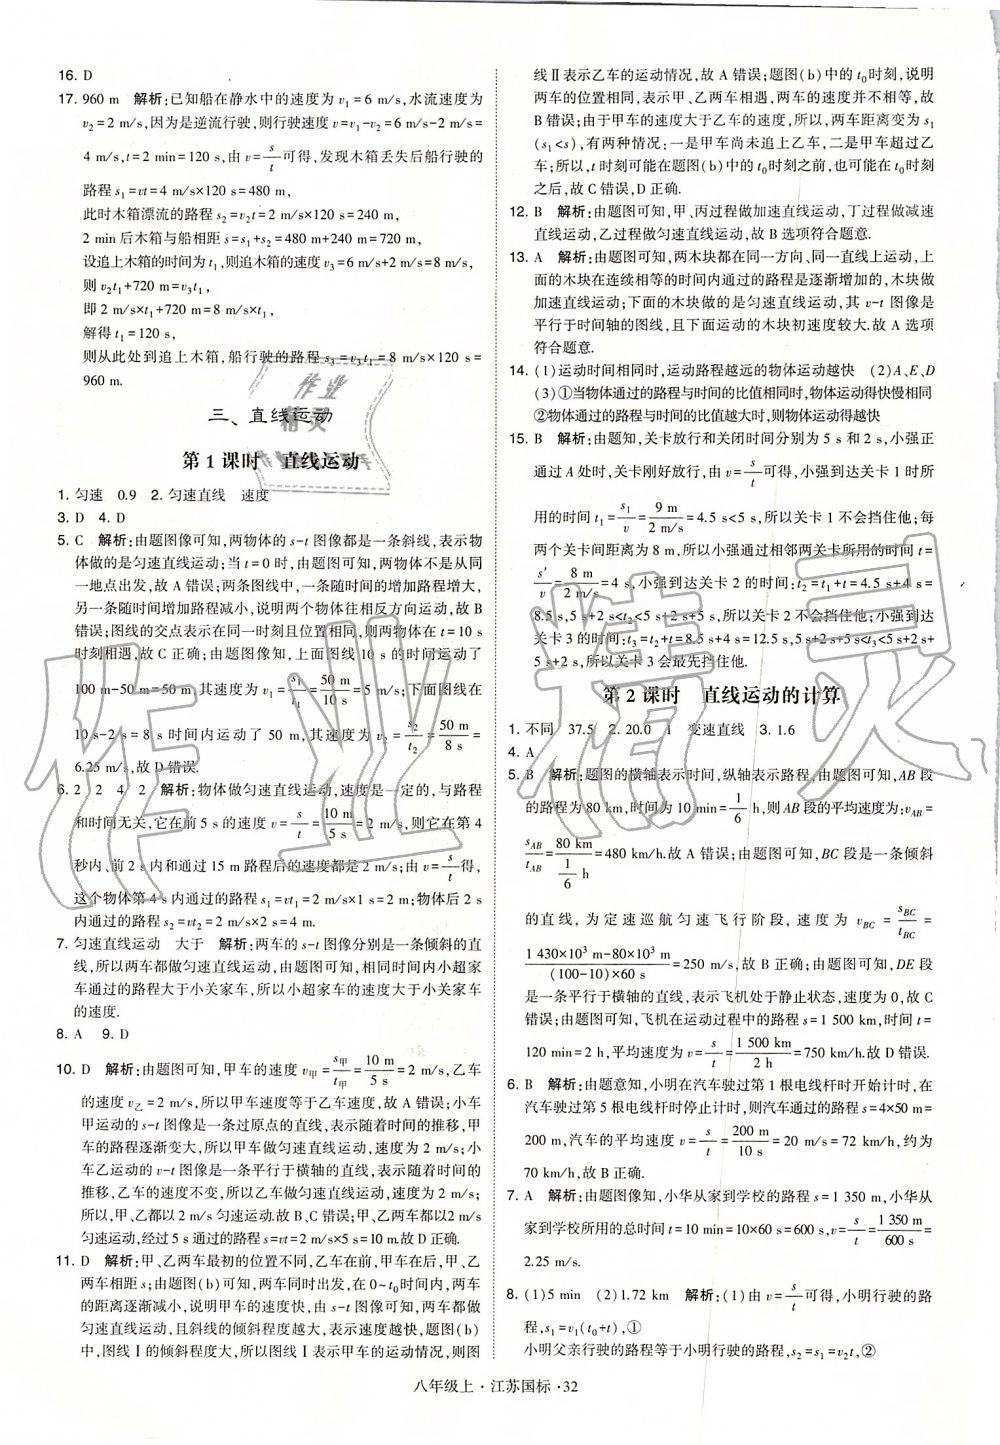 16. D
17. 960 m 解析:已知船在静水中的速度为 v₁=6 m/s,水流速度为
v₂=2 m/s,因为是逆流行驶,则行驶速度 v=v₁-v₂=6 m/s-2 m/s=
4 m/s,t=2 min=120 s,由 v=s/t可得,发现木箱丢失后船行驶的
路程 s₁=vt=4 m/s×120 s=480 m,
此时木箱漂流的路程 s₂=v₂t=2 m/s×120 s=240 m,
2 min后木箱与船相距 s=s₁+s₂=480 m+240 m=720 m,
设追上木箱的时间为 t₁,则追木箱的速度 v₃=6 m/s+2 m/s=8 m/s,
则 v₂t₁+720 m=v₃t₁,
即 2 m/s×t₁+720 m=8 m/s×t₁,
解得 t₁=120 s,
则从此处到追上木箱,船行驶的路程 s₃=v₃t₁=8 m/s×120 s=
960 m.
三、直线运动
第 1 课时 直线运动
1. 匀速 0.9 2. 匀速直线 速度
3. D 4. D
5. C 解析:由题图像可知,两物体的 s-t 图像都是一条斜线,表示物
体做的是匀速直线运动;当 t=0 时,由题图可知,两物体不是从同
一地点出发,故 A 错误;两条图线中,一条随时间的增加路程增大,
另一条随时间增加路程减小,说明两个物体往相反方向运动,故 B
错误;图线的交点表示在同一时刻且位置相同,则两物体在 t=10 s
时刻相遇,故 C 正确;由题图像知,上面图线 10 s 的时间运动了
100 m-50 m=50 m,其速度为 v₁=s₁/t₁=50 m/10 s=5 m/s;下面图线在
10 s-2 s=8 s 时间内运动了 50 m,其速度为 v₂=s₂/t₂=50 m/8 s=
6.25 m/s,故 D 错误.
6. 2 2 4 2 解析:物体做匀速直线运动,速度是一定的,与路程
和时间无关,它在前 5 s 的速度为 v=s/t=10 m/5 s=2 m/s,则它在第 4
秒内、前 2 s 内和通过 15 m 路程后的速度都是 2 m/s;由 v=s/t得,
这个物体第 4 s 内通过的路程 s₁=vt₁=2 m/s×1 s=2 m;物体后 2 s
内通过的路程 s₂=vt₂=2 m/s×2 s=4 m.
7. 匀速直线运动 大于 解析:两车的 s-t 图像分别是一条倾斜的直
线,所以两车都做匀速直线运动,由题图可知,相同时间内小超家
车通过的路程大于小关家车,所以小超家车的速度大于小关家车
的速度.
8. A 9. D
10. D 解析:由题图可知,甲车的速度 v甲=s甲/t甲=10 m/5 s=2 m/s,乙车
的速度 v乙=2 m/s,所以甲车速度等于乙车速度,故 A 错误;小车
甲运动的 s-t 图像是一条过原点的直线,表示随着时间的推移,甲
的路程逐渐变大,所以甲车做匀速直线运动,速度为 2 m/s;
小车乙运动的 v-t 图像是一条平行于横轴的直线,表示随着时间的
推移,乙车的速度不变,所以乙车做匀速直线运动,速度为 2 m/s;
所以,甲、乙都以 2 m/s 匀速运动.故 B、C 错误;甲、乙两车都以2 m/s
匀速运动,经过 5 s 通过的路程 s=vt=2 m/s×5 s=10 m.故 D 正确.
11. D 解析:甲、乙两车最初的位置不同,乙车在前,甲车在后,甲、乙
两车相距 s;由题图(b)可知,两车同时出发,在 0~t₀时间内,两车
的距离逐渐减小,说明甲车的速度快,由 s-t 图像可知,两车都做
匀速直线运动,且斜线的倾斜程度越大,表示速度越快,题图(b)
中,图线Ⅰ的倾斜程度大,所以图线Ⅰ表示甲车的运动情况,则图
线Ⅱ表示乙车的运动情况,故 A 错误;题图(b)中的 t₀时刻,说明
两车的位置相同,表示甲、乙两车相遇,两车的速度并不相等,故
B 错误;由于甲车的速度大于乙车的速度,所以,两车距离变为 s₁
(s₁<s),有两种情况:一是甲车尚未追上乙车,二是甲车超过乙
车;所以,t 时刻可能在题图(b)中的 t₀时刻之前,也可能在 t₀时刻
之后,故 C 错误,D 正确.
12. B 解析:由题图可知,甲、丙过程做加速直线运动,丁过程做减速
直线运动,乙过程做匀速直线运动,故 B 选项符合题意.
13. A 解析:由题图可知,两木块都在同一方向、同一直线上运动,上
面的木块在连续相等的时间内通过的路程是逐渐增加的,木块做
加速直线运动;下面的木块做的是匀速直线运动,其 v-t 图像是
平行于时间轴的图线,且下面运动的木块初速度较大.故 A 选项
符合题意.
14. (1)运动时间相同时,运动路程越远的物体运动越快 (2)A、E、D
(3)①当物体通过的路程与时间的比值相同时,物体运动得快慢相同
②物体通过的路程与时间的比值越大时,则物体运动得越快
15. B 解析:由题知,关卡放行和关闭时间分别为 5 s 和 2 s,小强正
通过 A 处时,关卡刚好放行,由 v=s/t可得,小强到达关卡 1 时所
用的时间 t₁=s₁/v=9 m/2 m/s=4.5 s<5 s,所以,关卡 1 不会挡住他;每
两个关卡间距离为 8 m,所以小强通过相邻两关卡所用的时间 t=
s′/v=8 m/2 m/s=4 s,小强到达关卡 2 的时间:t₂=t₁+t=4.5 s+4 s=
8.5 s,5 s+2 s<t₂<5 s+2 s+5 s,所以关卡 2 不会挡住他;小强到达
关卡 3 的时间:t₃=t₂+t=8.5 s+4 s=12.5 s,5 s+2 s+5 s<t₃<5 s+2 s+
5 s+2 s,所以关卡 3 会最先挡住他.
第 2 课时 直线运动的计算
1. 不同 37.5 2. 20.0 1 变速直线 3. 1.6
4. A
5. B 解析:题图的横轴表示时间,纵轴表示路程,由图可知,AB 段
的路程为 80 km,时间为 10 min=1/6 h,则 AB 段的平均速度为:v_AB=
s_AB/t_AB=80 km/(1/6 h)=480 km/h.故 A 错误;由题图可知,BC 段是一条倾斜
的直线,为定速巡航匀速飞行阶段,速度为 v_BC=s_BC/t_BC=
(1 430×10³ m-80×10³ m)/((100-10)×60 s)=250 m/s,故 B 正确;由题图可知,DE 段
是一条平行于横轴的直线,表示飞机处于静止状态,速度为 0,故 C
错误;由图可知,飞机在运动过程中的路程 s=1 500 km,时间 t=
120 min=2 h,平均速度为 v=s/t=1 500 km/2 h=750 km/h.故 D 错误.
6. B 解析:由题意知,小明在汽车驶过第 1 根电线杆时开始计时,在
汽车驶过第 5 根电线杆时停止计时,则汽车通过的路程 s=4×50 m=
200 m,汽车的平均速度 v=s/t=200 m/10 s=20 m/s=72 km/h,约为
70 km/h,故 B 正确.
7. A 解析:由题图像知,小华从家到学校的路程 s=1 350 m,小华从
家到学校所用的总时间 t=10 min=10×60 s=600 s,v=s/t=1 350 m/600 s=
2.25 m/s.
8. (1)5 min (2)1.72 km 解析:(1)由 v=s/t可得,小明行驶的路
程,s₁=v₁(t₀+t),①
小明父亲行驶的路程等于小明行驶的路程,s₂=s₁=v₂t,②
八年级上·江苏国标·32
作业精灵